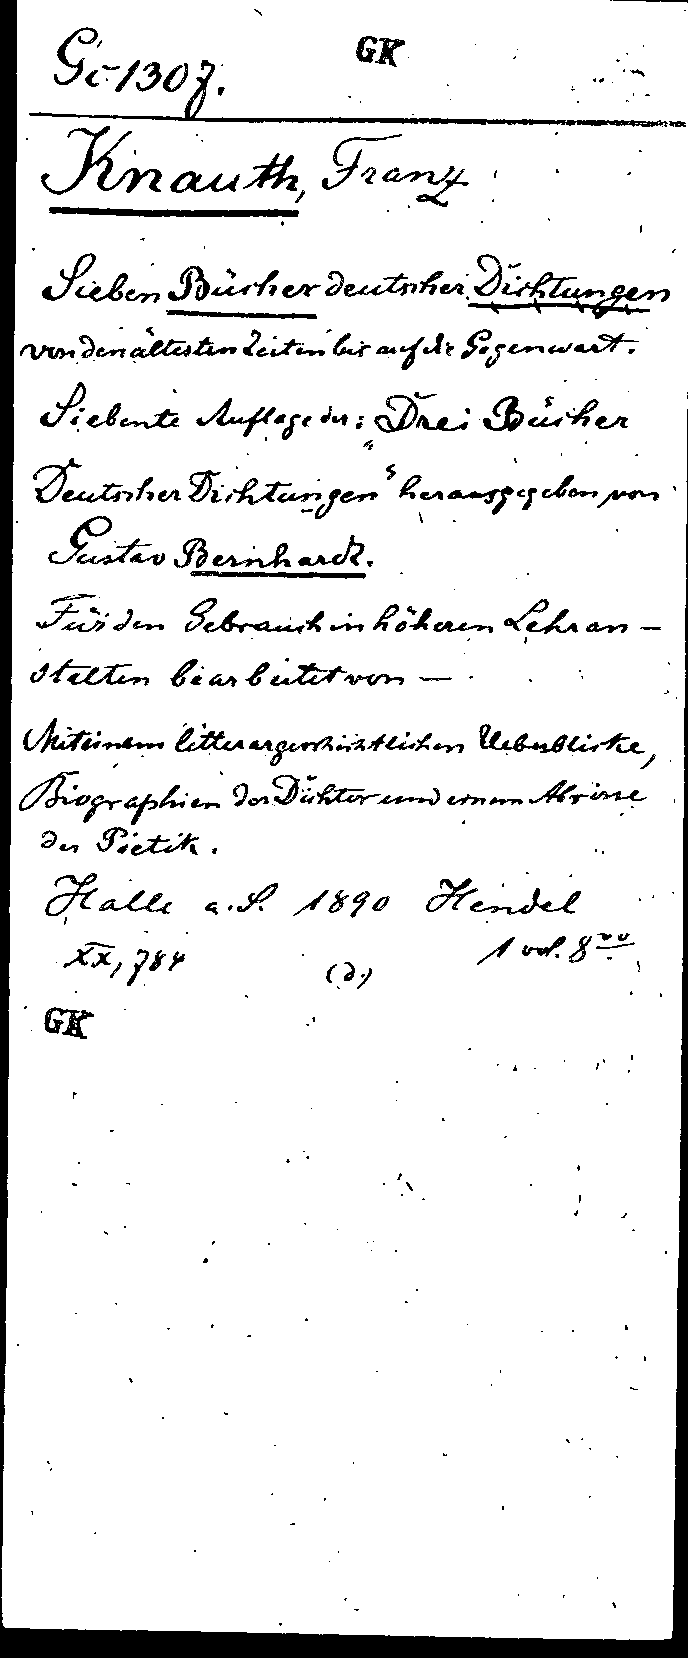 Gi-1307. GK
Knauth, Franz
Sieben Bücher deutscher Dichtungen
von den ältesten Zeiten bis auf die Gegenwart.
Siebente Auflage der: „Drei Bücher
Deutscher Dichtungen“ herausgegeben von
Gustav Bernhardt.
Für den Gebrauch in höheren Lehran-
stalten bearbeitet von —
Mit einem litterargeschichtlichen Ueberblicke,
Biographien der Dichter und einem Abrisse
der Poetik.
Halle a. S. 1890 Hendel
XX, 784 (d.) 1 vol. 8vo
GK